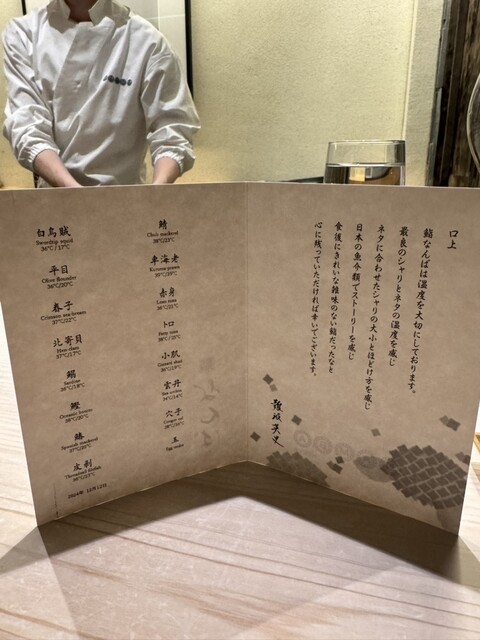 白烏賊
Swordtip squid
36℃/17℃
平目
Olive flounder
36℃/20℃
春子
Crimson sea-bream
37℃/22℃
北寄貝
Hen clam
37℃/17℃
鰯
Sardine
36℃/18℃
鰹
Oceanic bonito
38℃/20℃
鰆
Spanish mackerel
37℃/20℃
皮剥
Threadsail filefish
38℃/23℃
2024年 12月12日
鯖
Chub mackerel
38℃/23℃
車海老
Kuruma prawn
39℃/39℃
赤身
Lean tuna
38℃/21℃
トロ
Fatty tuna
小肌
Gizzard shad
36℃/19℃
雲丹
Sea urchin
34℃/14℃
穴子
Conger eel
玉
Egg
口上
鮨なんばは温度を大切にしております。
最良のシャリとネタの温度を感じ
ネタに合わせたシャリの大小とほどけ方を感じ
日本の魚介類でストーリーを感じ
食後にきれいな雑味のない鮨だったなと
心に残っていただければ幸いでございます。
難波英史